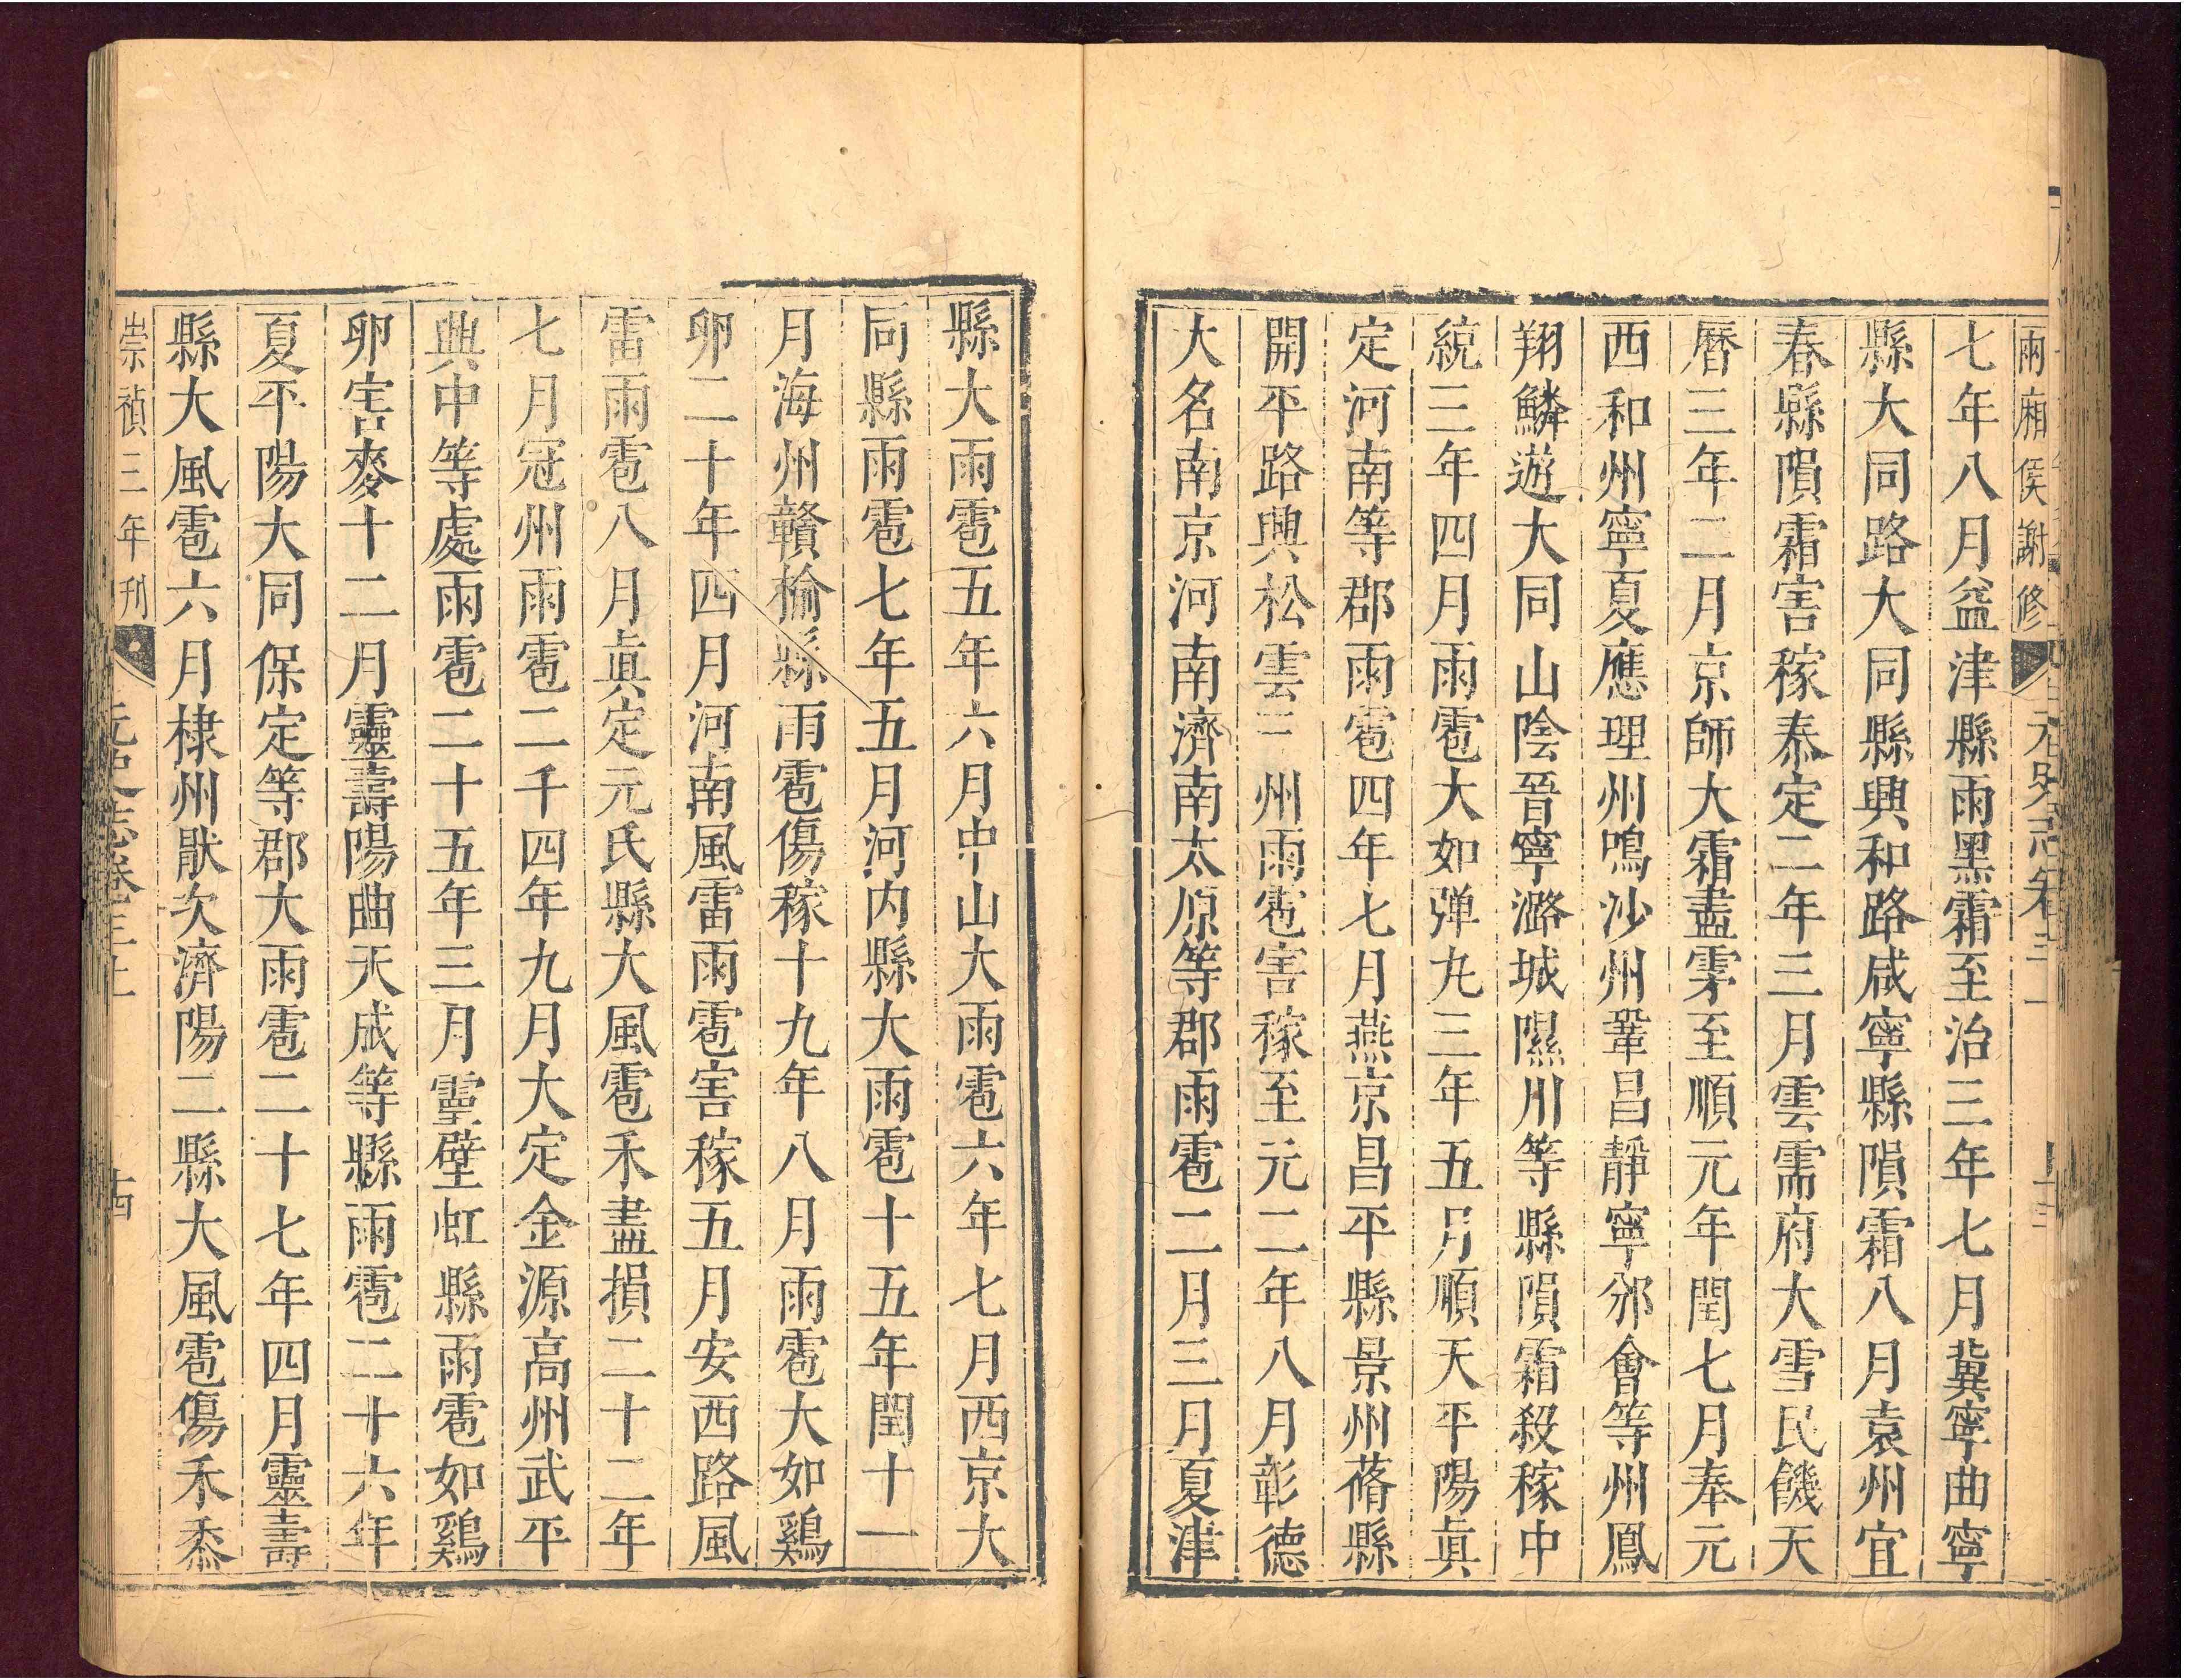 兩廂侯謝修
元史志卷三
七年八月益津縣雨黑霜至治三年七月冀寧曲寧
縣大同路大同縣興和路咸寧縣隕霜八月袁州宜
春縣隕霜害稼泰定二年三月雲需府大雪民饑天
曆三年二月京師大霜晝雺至順元年閏七月奉元
西和州寧夏應理州鳴沙州鞏昌靜寧邠會等州鳳
翔鱗遊大同山陰晉寧潞城隰川等縣隕霜殺稼中
統三年四月雨雹大如弹丸三年五月順天平陽真
定河南等郡雨雹四年七月燕京昌平縣景州蓨縣
開平路興松雲三州雨雹害稼至元二年八月彰德
大名南京河南濟南太原等郡雨雹二月三月夏津
縣大雨雹五年六月中山大雨雹六年七月西京大
同縣雨雹七年五月河内縣大雨雹十五年閏十一
月海州贛榆縣雨雹傷稼十九年八月雨雹大如鷄
卵二十年四月河南風雷雨雹害稼五月安西路風
雷雨雹八月真定元氏縣大風雹禾盡損二十二年
七月冠州雨雹二千四年九月大定金源高州武平
興中等處雨雹二十五年三月靈壁虹縣雨雹如鷄
卵害麥十二月靈壽陽曲天成等縣雨雹二十六年
夏平陽大同保定等郡大雨雹二十七年四月靈壽
縣大風雹六月棣州厭次濟陽二縣大風雹傷禾黍
崇禎三年刊
元史志卷三上
十四